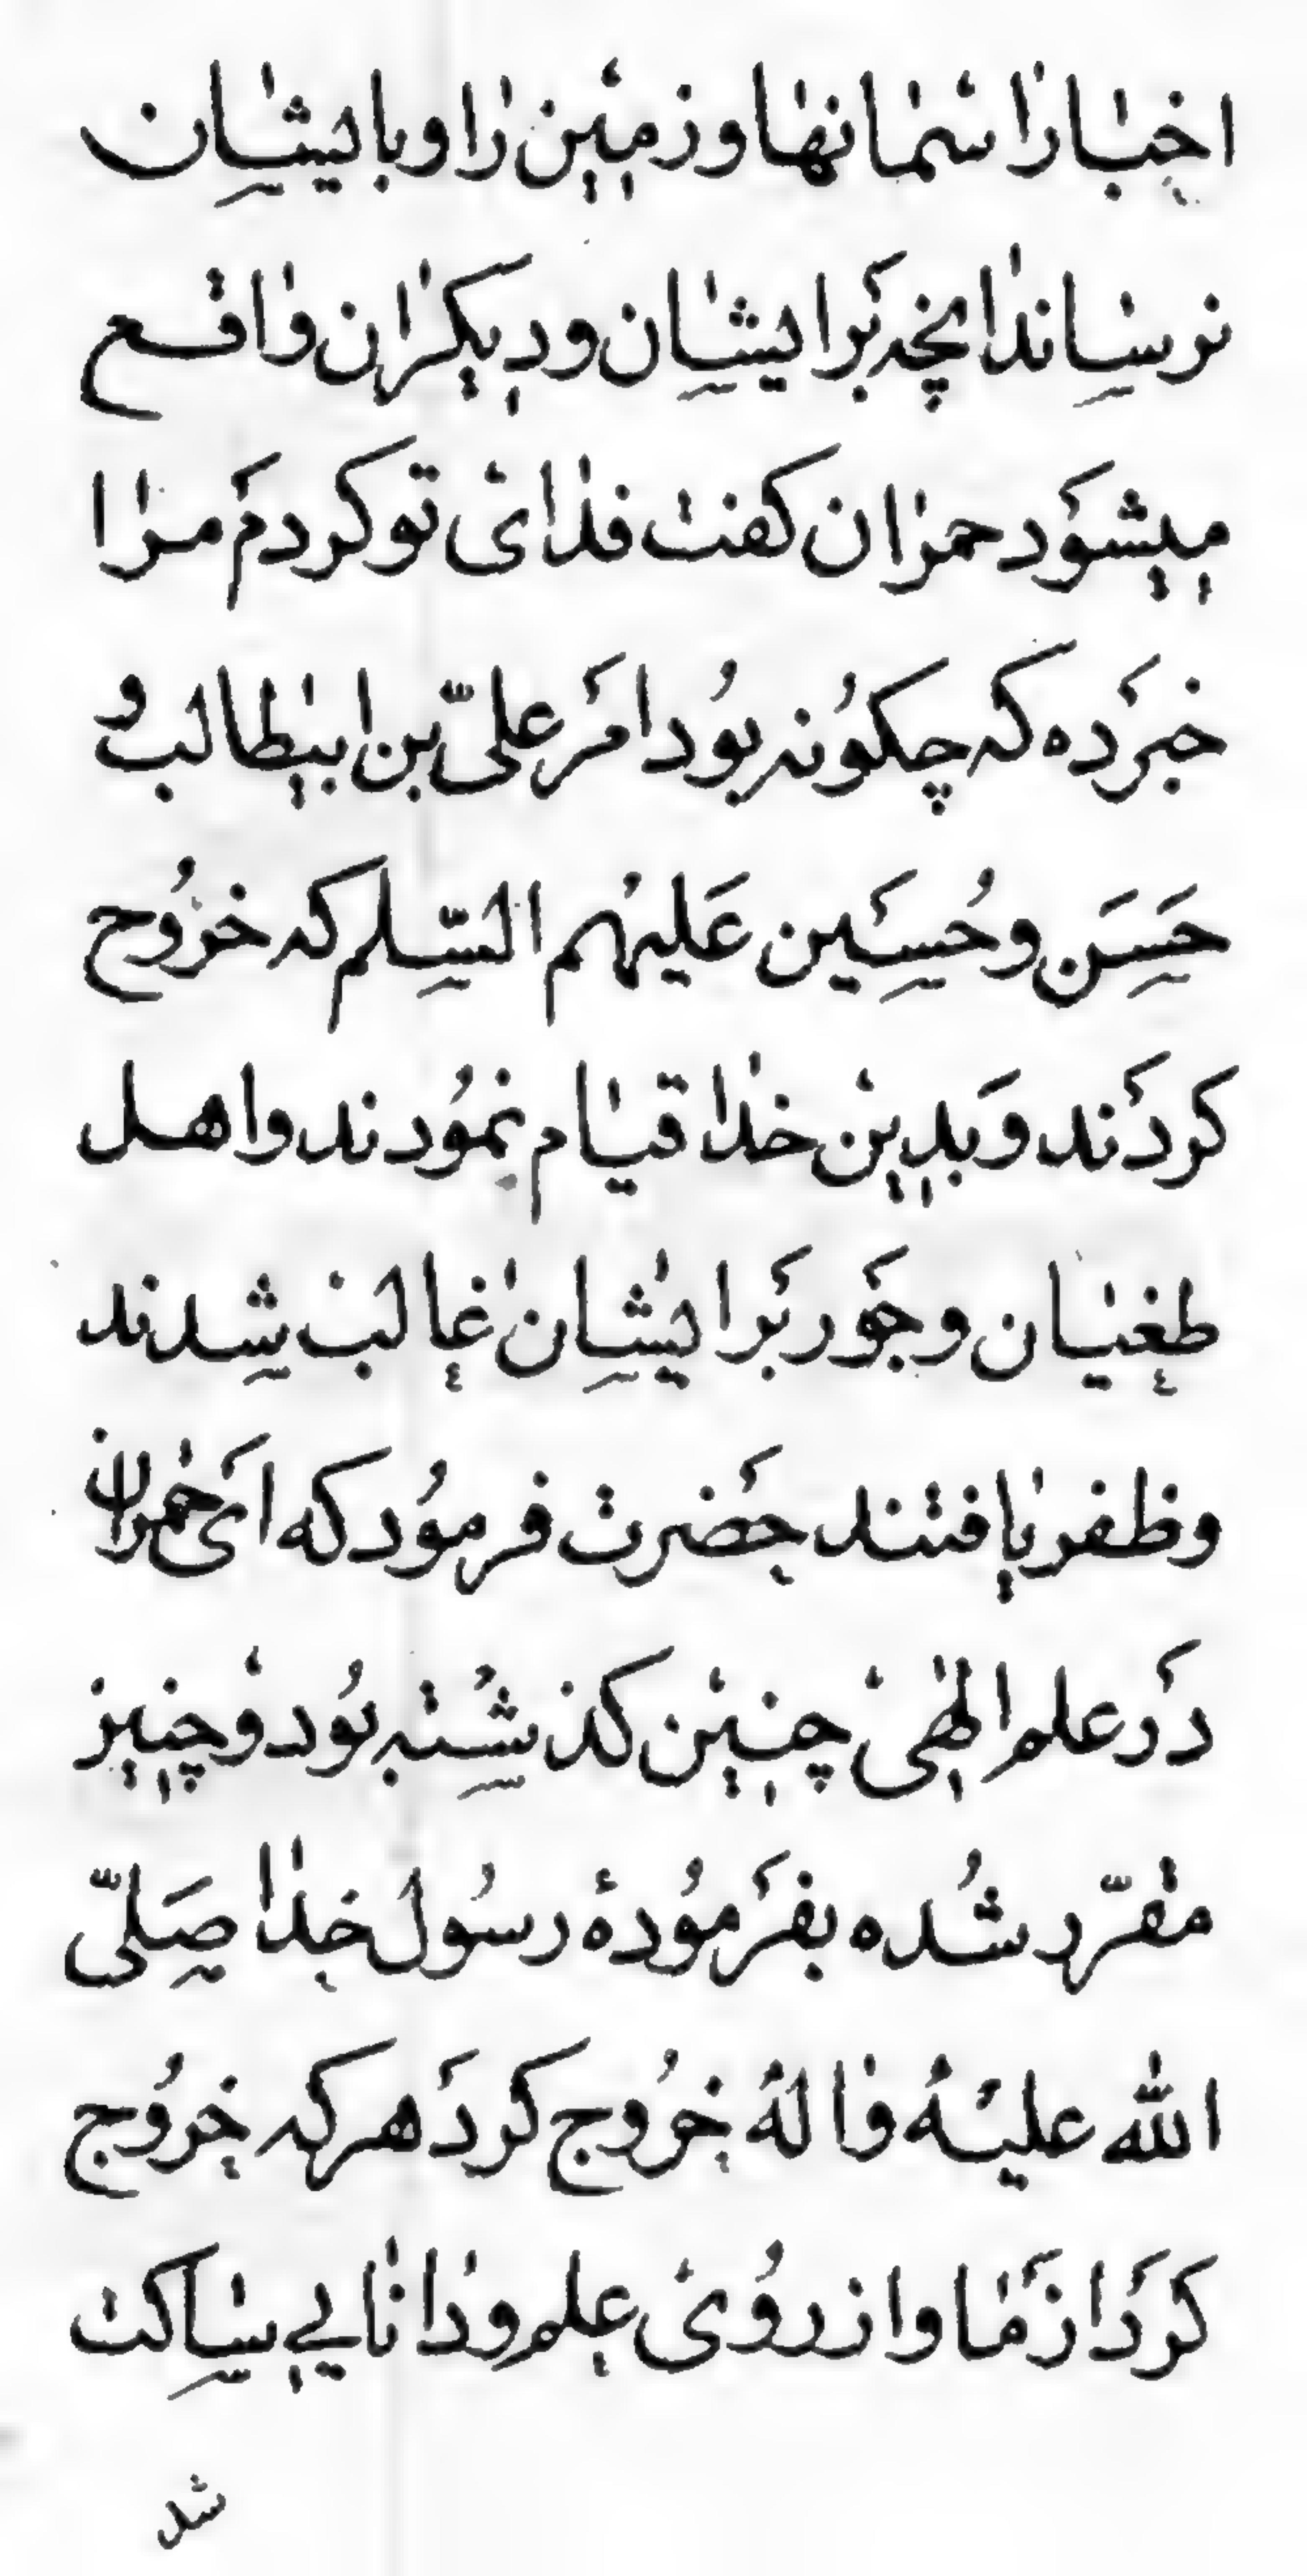 اخبار اسمانها و زمین را و بایشان
نرساند انچه بر ایشان و دیکران واقع
میشود حمران کفت فدای تو کردم مرا
خبر ده که چکونه بود امر علیّ بن ابیطالب و
حسن و حسین علیهم السّلم که خروج
کردند و بدین خدا قیام نمودند و اهل
طغیان و جور بر ایشان غالب شدند
و ظفر یافتند حضرت فرمود که ای حمران
در علم الهی چنین کذشته بود و چنیز
مقرّر شده بفرمودهٔ رسول خدا صلیّ
الله علیه و اله خروج کرد هر که خروج
کرد از ما و از روی علم و دانایی ساکت
شد